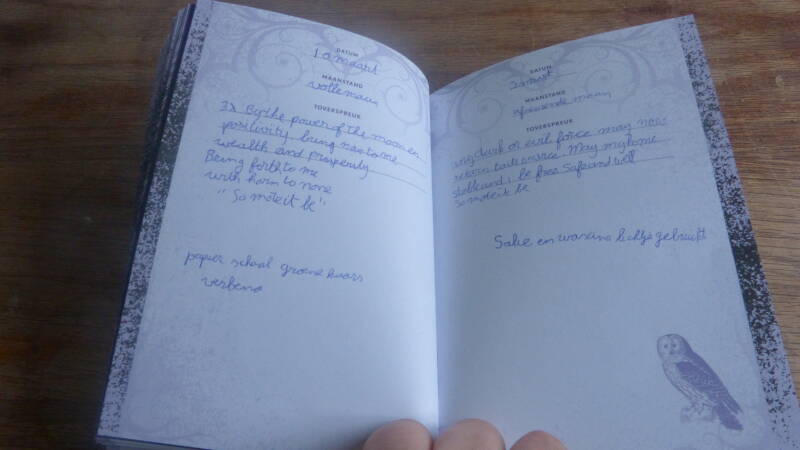 DATUM
10 maart
MAANSTAND
vollemaan
TOVERSPREUK
3x By the power of the moon en
positivity bring nes to me
wealth and prosperity
Being forth to me
with harm to none
"So mote it be"
papier schaal groene kaars
verbena
DATUM
maart
MAANSTAND
afnemende maan
TOVERSPREUK
any dark or evil force may now
return to its source. May my home
be free safe and well
So mote it be
Salie en waxine lichtje gebruikt